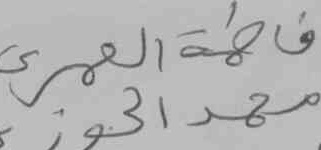 فاطمة العمري
محمد الجوز